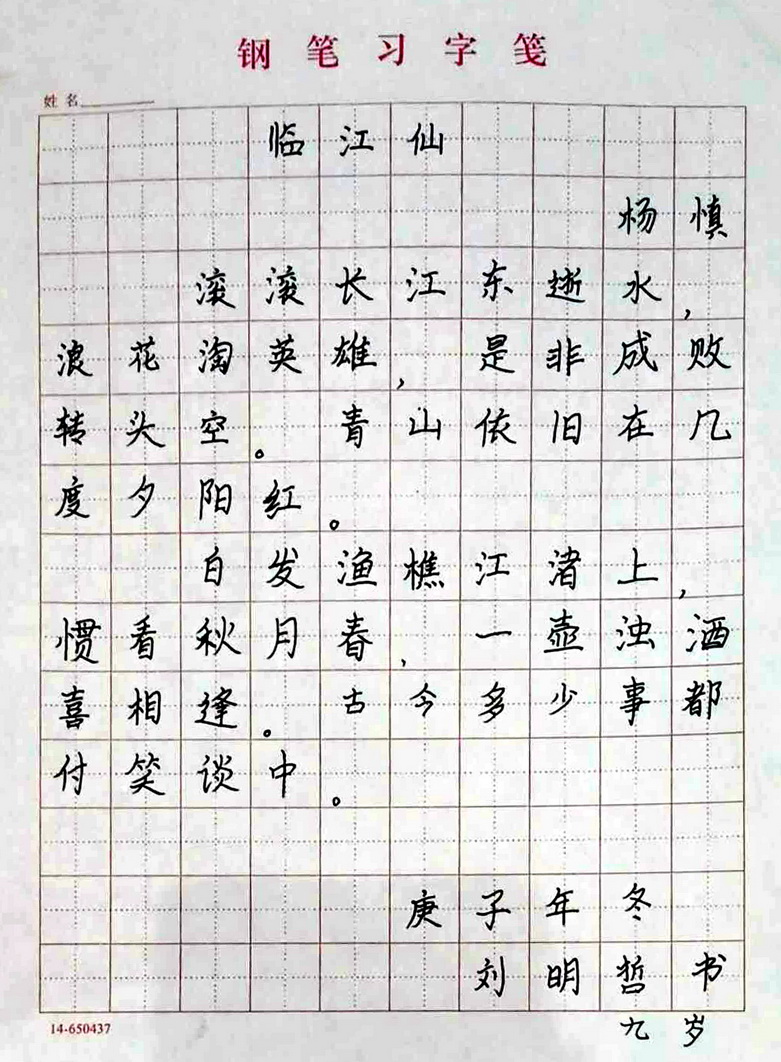 钢笔习字笺
姓名
临江仙
杨慎
滚滚长江东逝水,
浪花淘英雄,是非成败
转头空。青山依旧在几
度夕阳红。
白发渔樵江渚上,
惯看秋月春,一壶浊酒
喜相逢。古今多少事都
付笑谈中。
庚子年冬
刘明哲书
九岁
14-650437